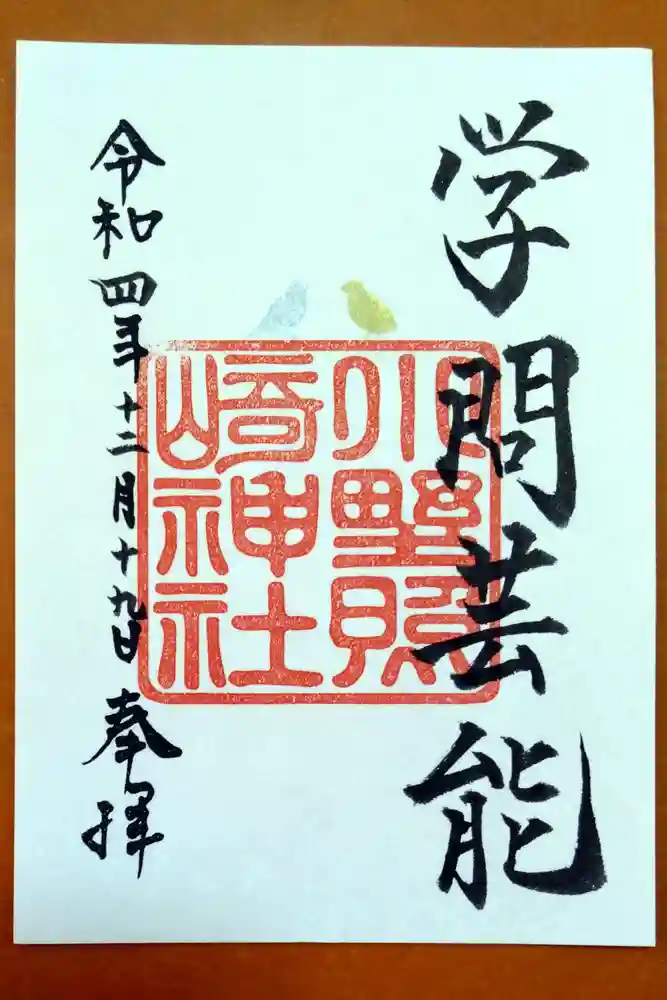 学問芸能
小野照
崎神社
令和四年十二月十九日 奉拝